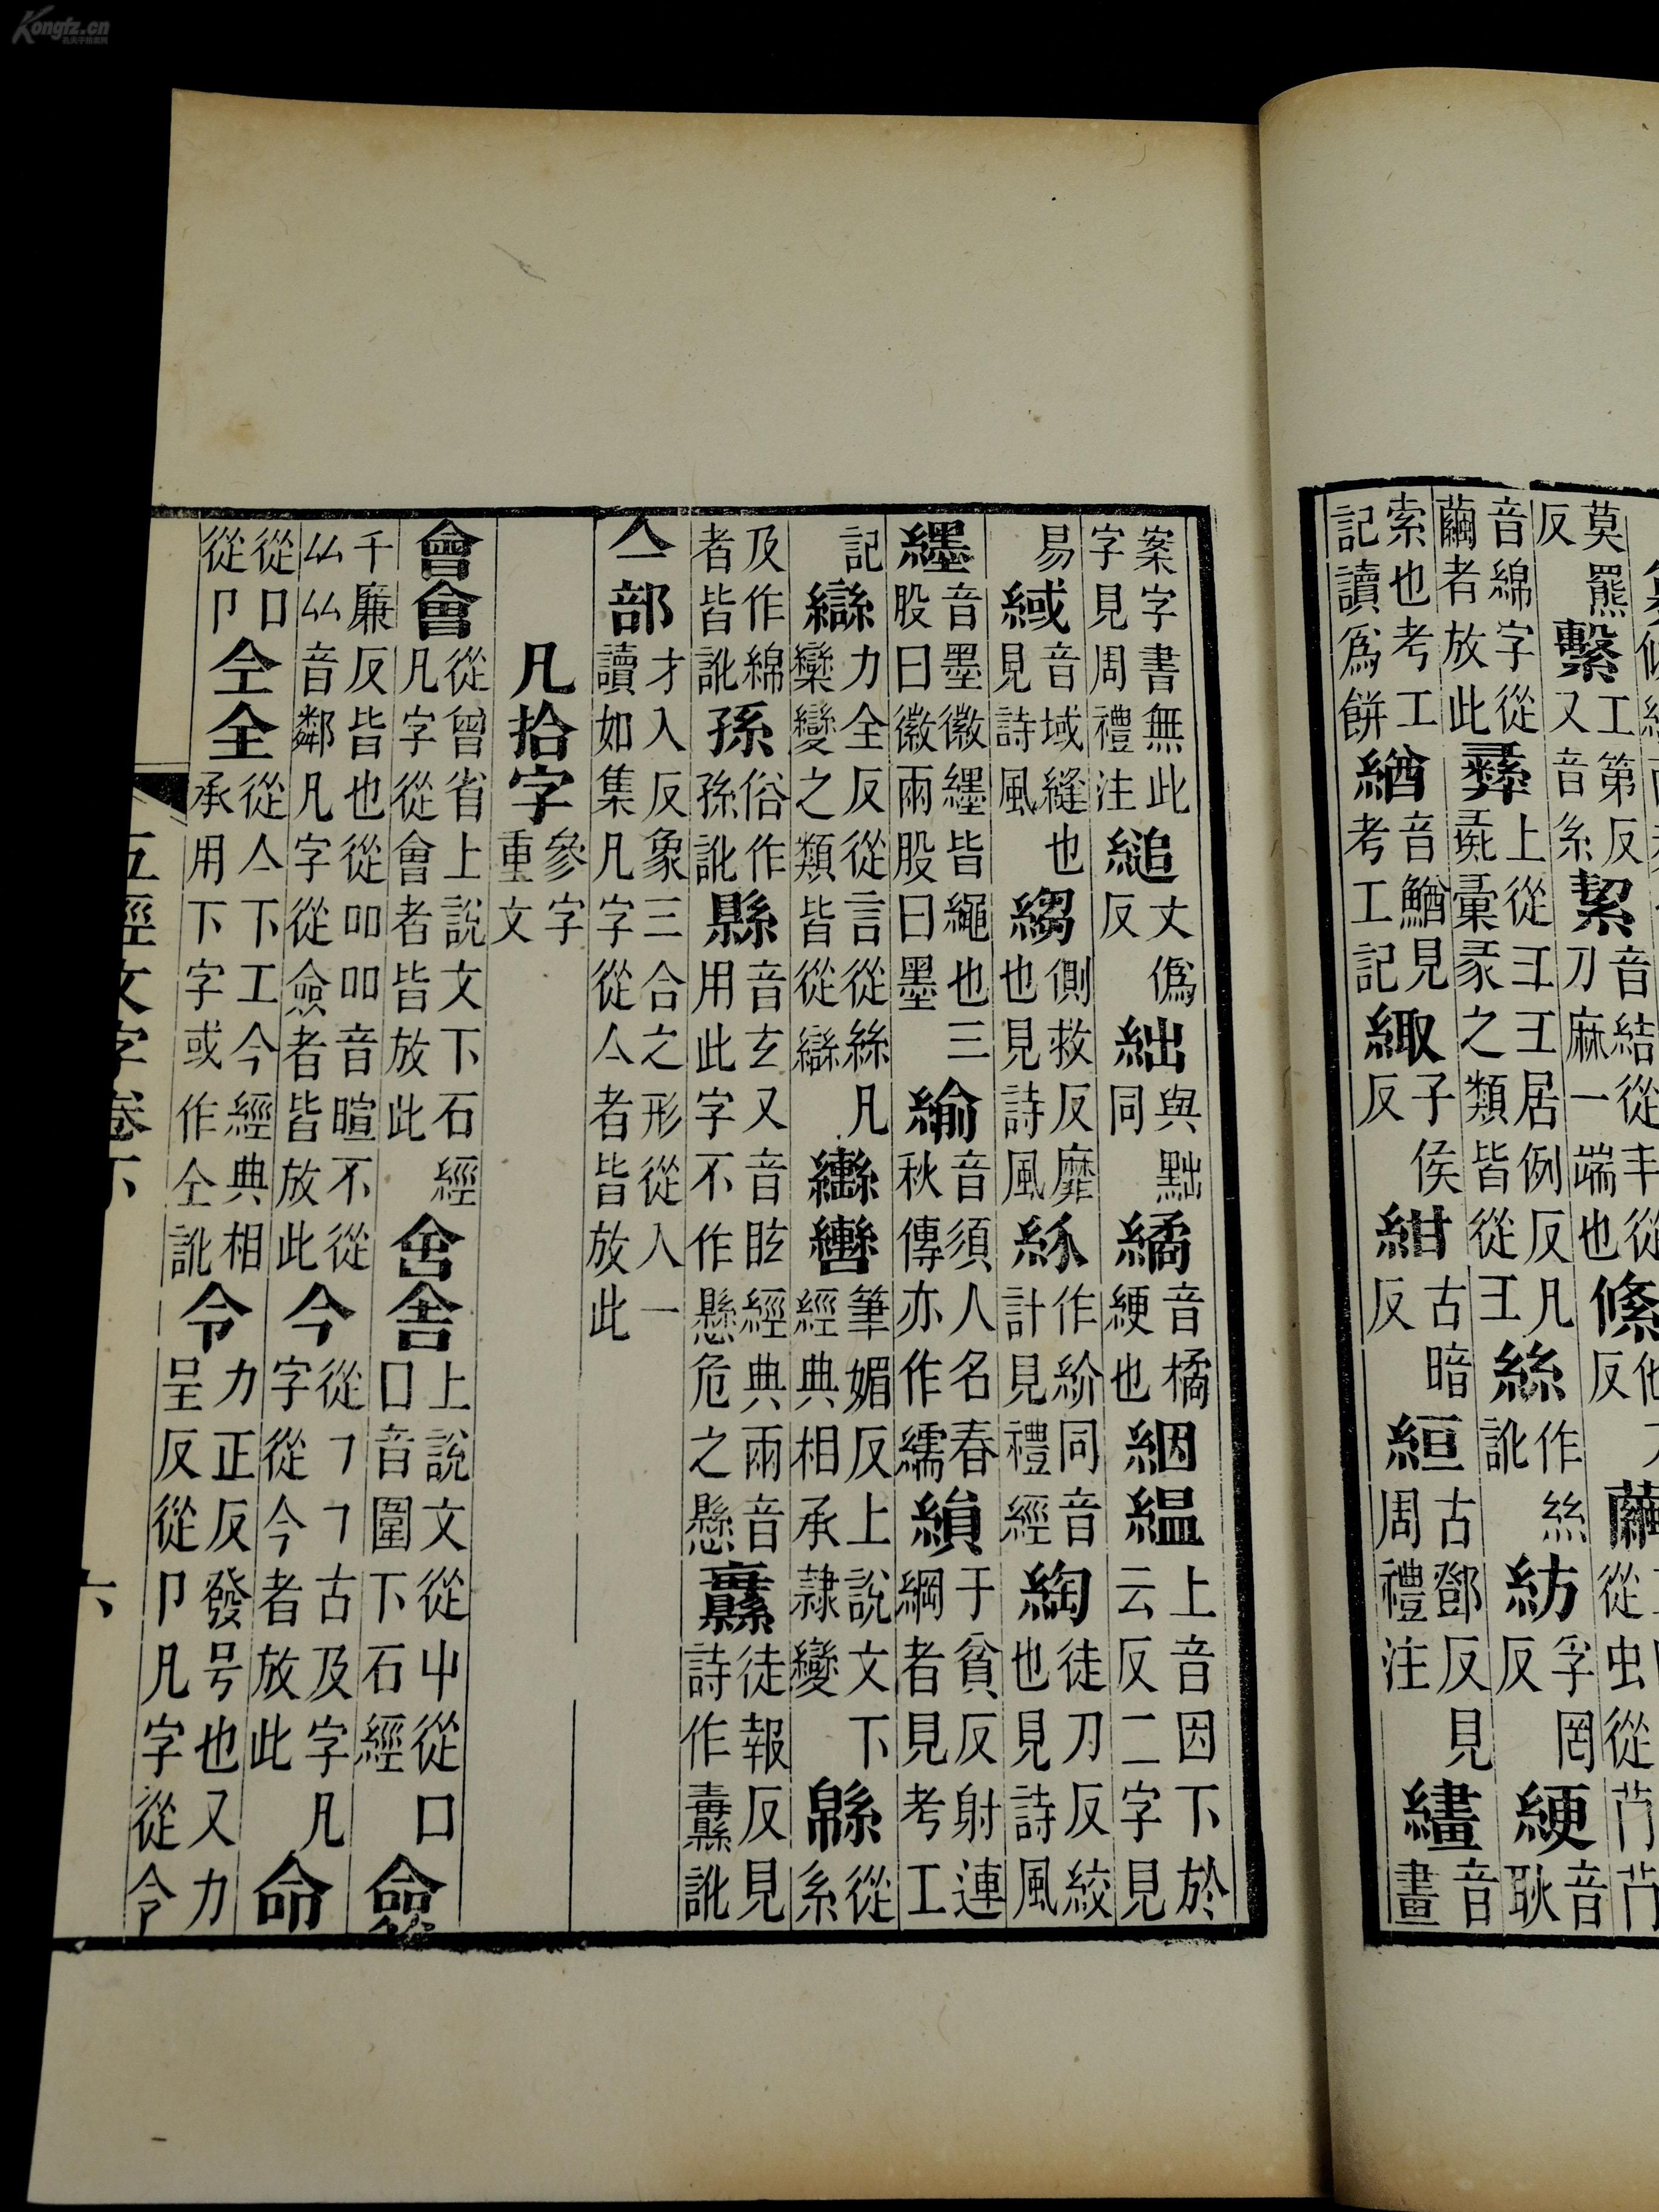 莫羆反 繫 工第反又音系 絜 音結從丰從刀麻一端也
音綿字從繭者放此 彝 上從彑彑居例反凡彘彙彖之類皆從彑 絲 作絲訛 紡 孚罔反 綆 音耿
索也考工記讀爲餠 緧 音鰌見考工記 緅 子侯反 紺 古暗反 絙 古鄧反見周禮注 繣 音畫
案字書無此字見周禮注 縋 丈僞反 絀 與黜同 繘 音橘綆也 絪縕 上音因下於云反二字見
易 緎 音域縫也見詩風 縐 側救反靡也見詩風 作紒同音計見禮經 綯 徒刀反絞也見詩風
纆 音墨徽纆皆繩也三股曰徽兩股曰墨 緰 音須人名春秋傳亦作繻 縜 于貧反射連綱者見考工
記 䜌 力全反從言從絲凡欒變之類皆從䜌 轡轡 筆媚反上說文下經典相承隷變 緜 從系
及作綿者皆訛 孫 俗作孫訛 縣 音玄又音眩經典兩音用此字不作懸危之懸 纛 徒報反見詩作纛訛
亼部 才入反象三合之形從入一讀如集凡字從亼者皆放此
凡拾字 參字重文
會會 從曾省上說文下石經凡字從會者皆放此 舍舍 上說文從屮從口口音圍下石經 僉
千廉反皆也從吅吅音暄不從厸厸音鄰凡字從僉者皆放此 今 從㇕㇕古及字凡字從今者放此 命
從口從卩 仝全 從亼下工今經典相承用下字或作仝訛 令 力正反發号也又力呈反從卩凡字從令
五經文字卷下 六
Kongfz.cn